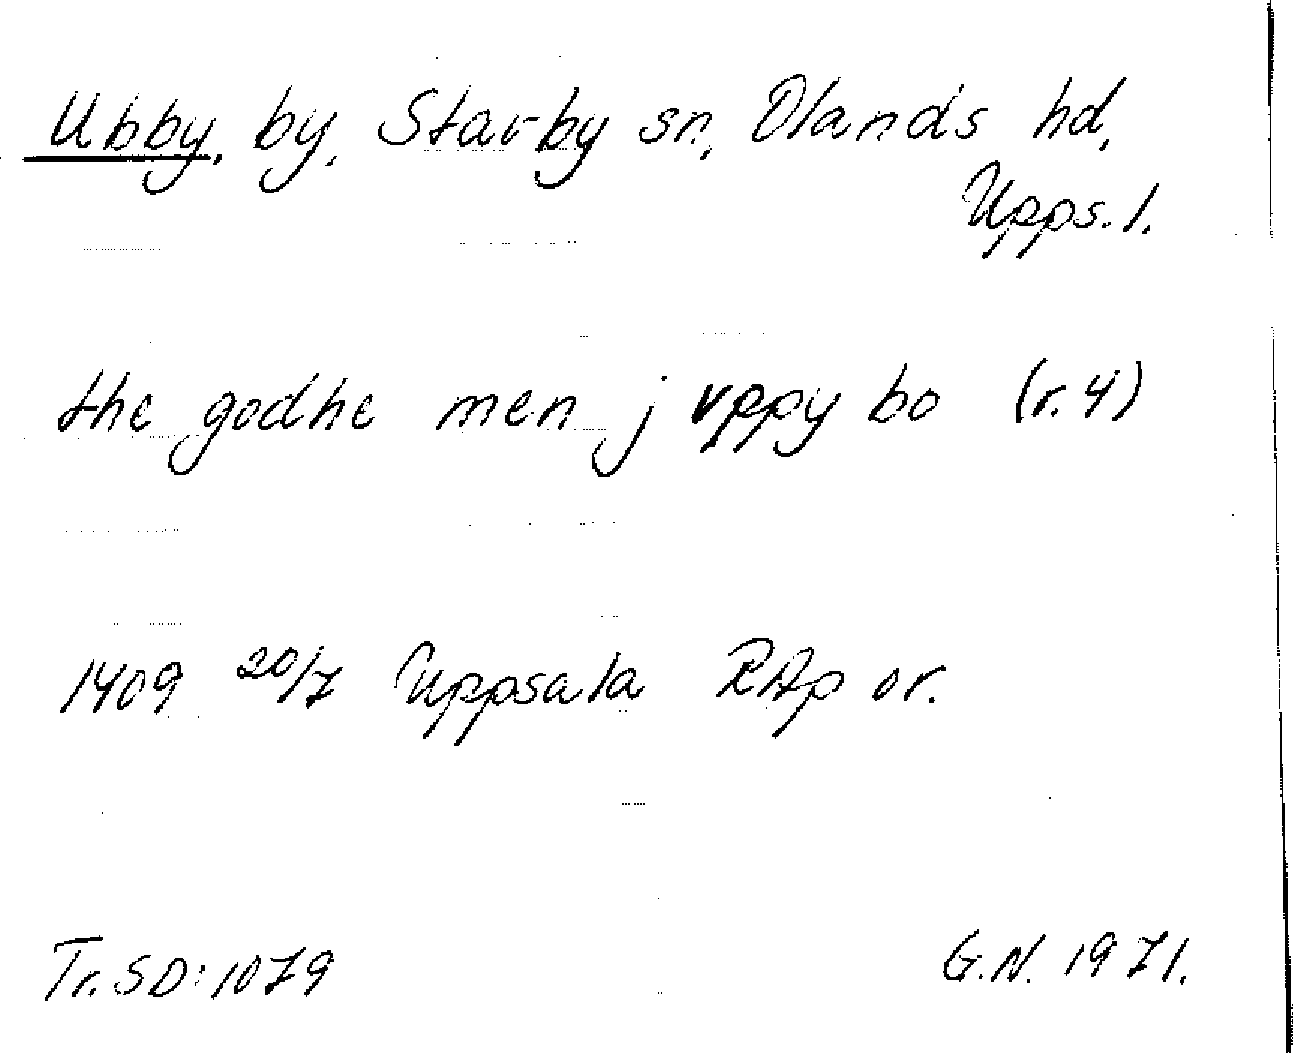 Ubby, by, Stavby sn, Olands hd,
Upps. l.
the godhe men j vppy bo (r. 4)
1409 20/7 Uppsala RAp or.
Tr. SD: 1079
G.N. 1971.